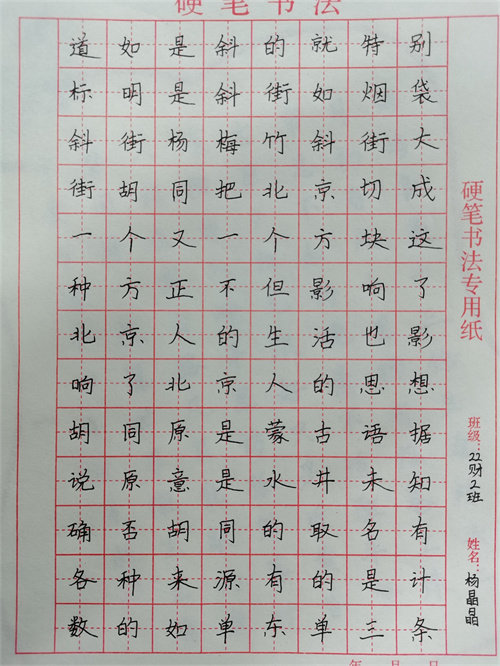 硬笔书法
道如是斜的就特别
标明是斜街如烟袋
斜街杨梅竹斜街大
街胡同把北京切成
一个又一个方块这
种方正不但影响了
北京人的生活也影
响了北京人的思想
胡同原是蒙古语据
说原意是水井未知
确否胡同的取名有
各种来源有的是计
数的如单东单三条
硬笔书法专用纸
班级：22财2班
姓名：杨晶晶
年 月 日